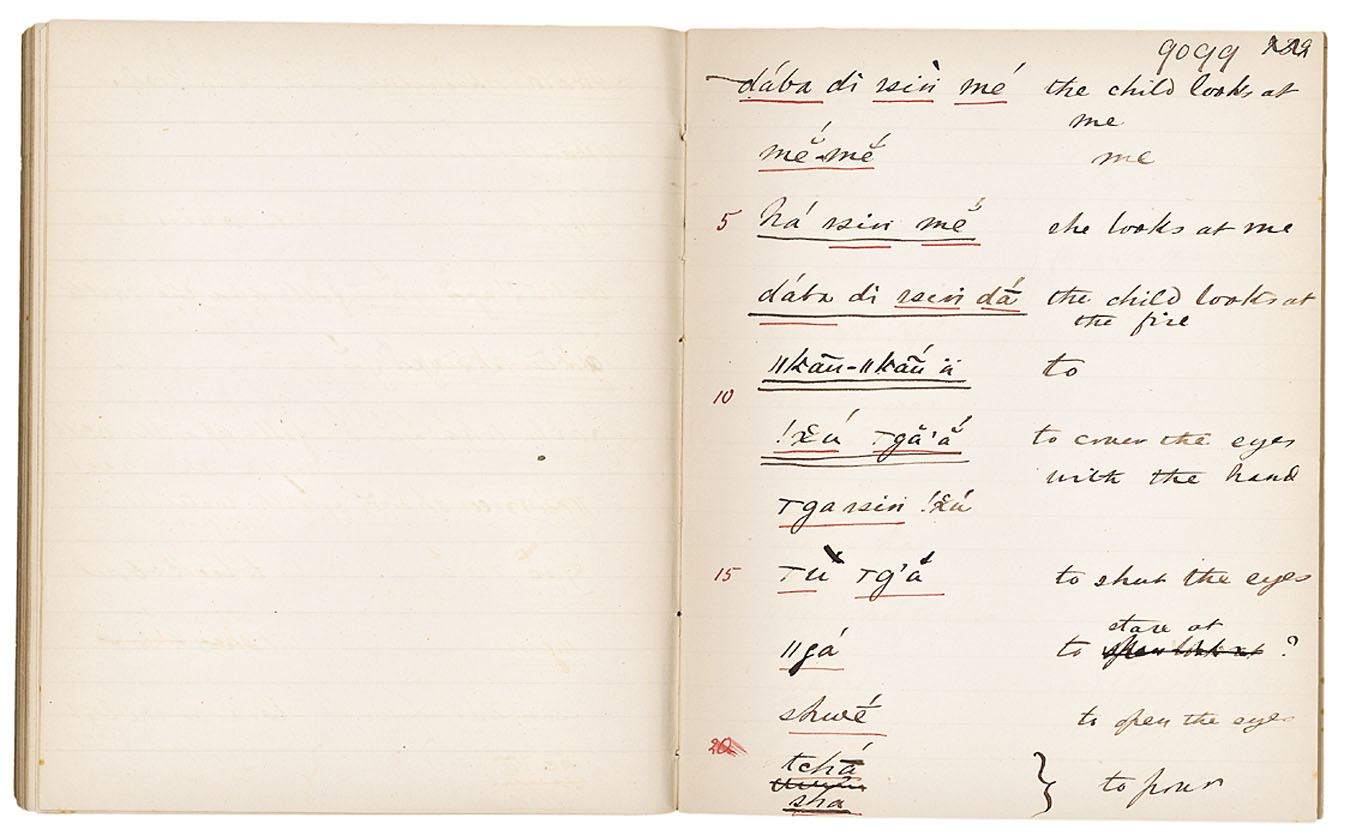 9099
dába di ssiń mé the child looks at
me
mĕ́-mĕ́ me
5 há ssin mĕ́ she looks at me
dába di ssin dá̄ the child looks at
the fire
ǁkāu-ǁkāú ii to
10
ǃx̆ú ꞱgăꞋắ to cover the eyes
with the hand
Ʇga ssin ǃx̆ú
15 Ʇù Ʇg'á to shut the eyes
stare at
ǁgá to ?
shwḗ to open the eyes
20
tchá̄
} to pour
sha